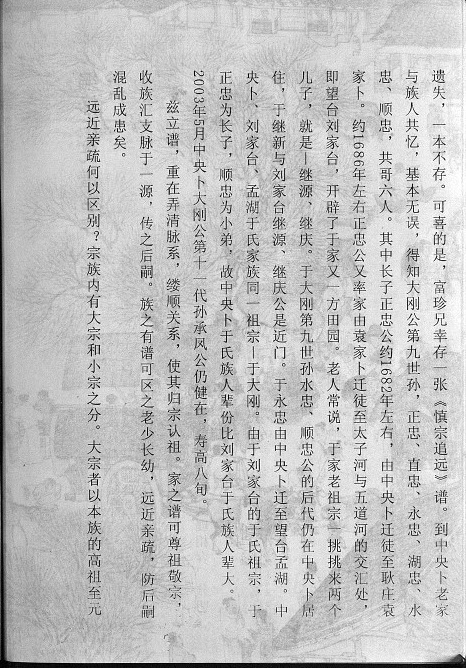 遗失，一本不存。可喜的是，富珍兄幸存一张《慎宗追远》谱。到中央卜老家
与族人共忆，基本无误，得知大刚公第九世孙，正忠、直忠、永忠、湖忠、水
忠、顺忠，共哥六人。其中长子正忠公约1682年左右，由中央卜迁徒至耿庄袁
家卜。约1686年左右正忠公又率家由袁家卜迁徒至太子河与五道河的交汇处，
即望台刘家台，开辟了于家又一方田园。老人常说，于家老祖宗一挑挑来两个
儿子，就是—继源、继庆。于大刚第九世孙水忠、顺忠公的后代仍在中央卜居
住，于继新与刘家台继源、继庆公是近门。于永忠由中央卜迁至望台孟湖。中
央卜、刘家台、孟湖于氏家族同一祖宗—于大刚。由于刘家台的于氏祖宗，于
正忠为长子，顺忠为小弟，故中央卜于氏族人辈份比刘家台于氏族人辈大。
2003年5月中央卜大刚公第十一代孙承凤公仍健在，寿高八旬。
兹立谱，重在弄清脉系，缕顺关系，使其归宗认祖。家之谱可尊祖敬宗，
收族汇支脉于一源，传之后嗣。族之有谱可区之老少长幼，远近亲疏，防后嗣
混乱成患矣。
远近亲疏何以区别？宗族内有大宗和小宗之分。大宗者以本族的高祖至元